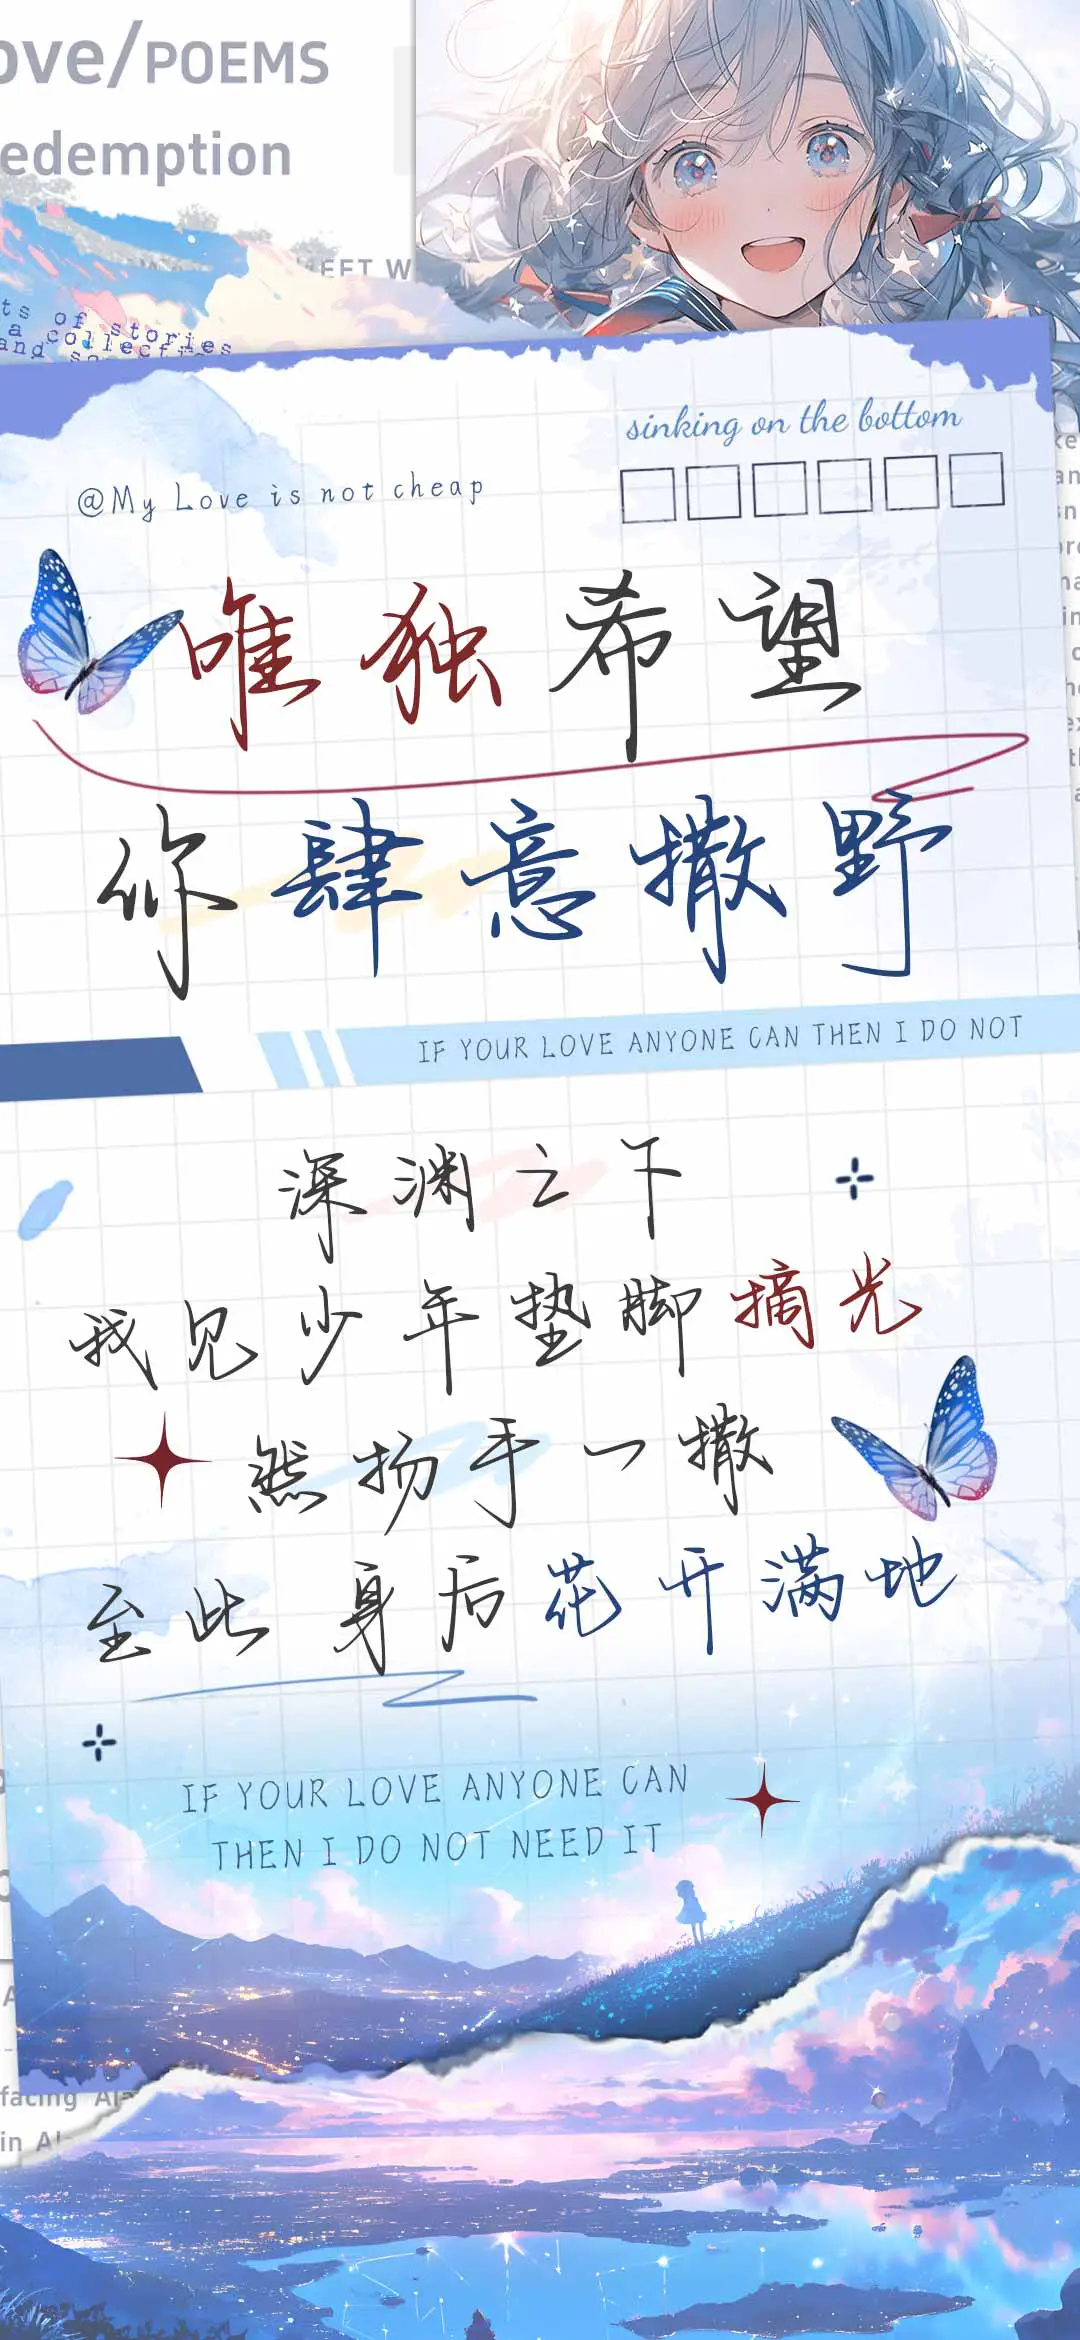 ove/POEMS
edemption
EET W
ts of stories
a collect
and
sinking on the bottom
@My Love is not cheap
唯独希望
你肆意撒野
IF YOUR LOVE ANYONE CAN THEN I DO NOT
深渊之下
我见少年垫脚摘光
然扬手一撒
至此 身后花开满地
IF YOUR LOVE ANYONE CAN
THEN I DO NOT NEED IT
facing Ala
in Al